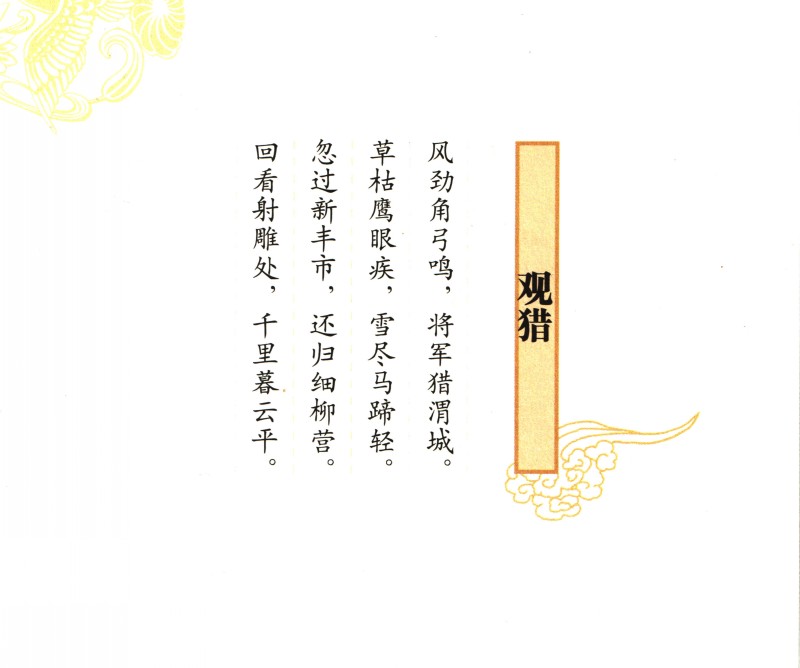 观猎
风劲角弓鸣，将军猎渭城。
草枯鹰眼疾，雪尽马蹄轻。
忽过新丰市，还归细柳营。
回看射雕处，千里暮云平。